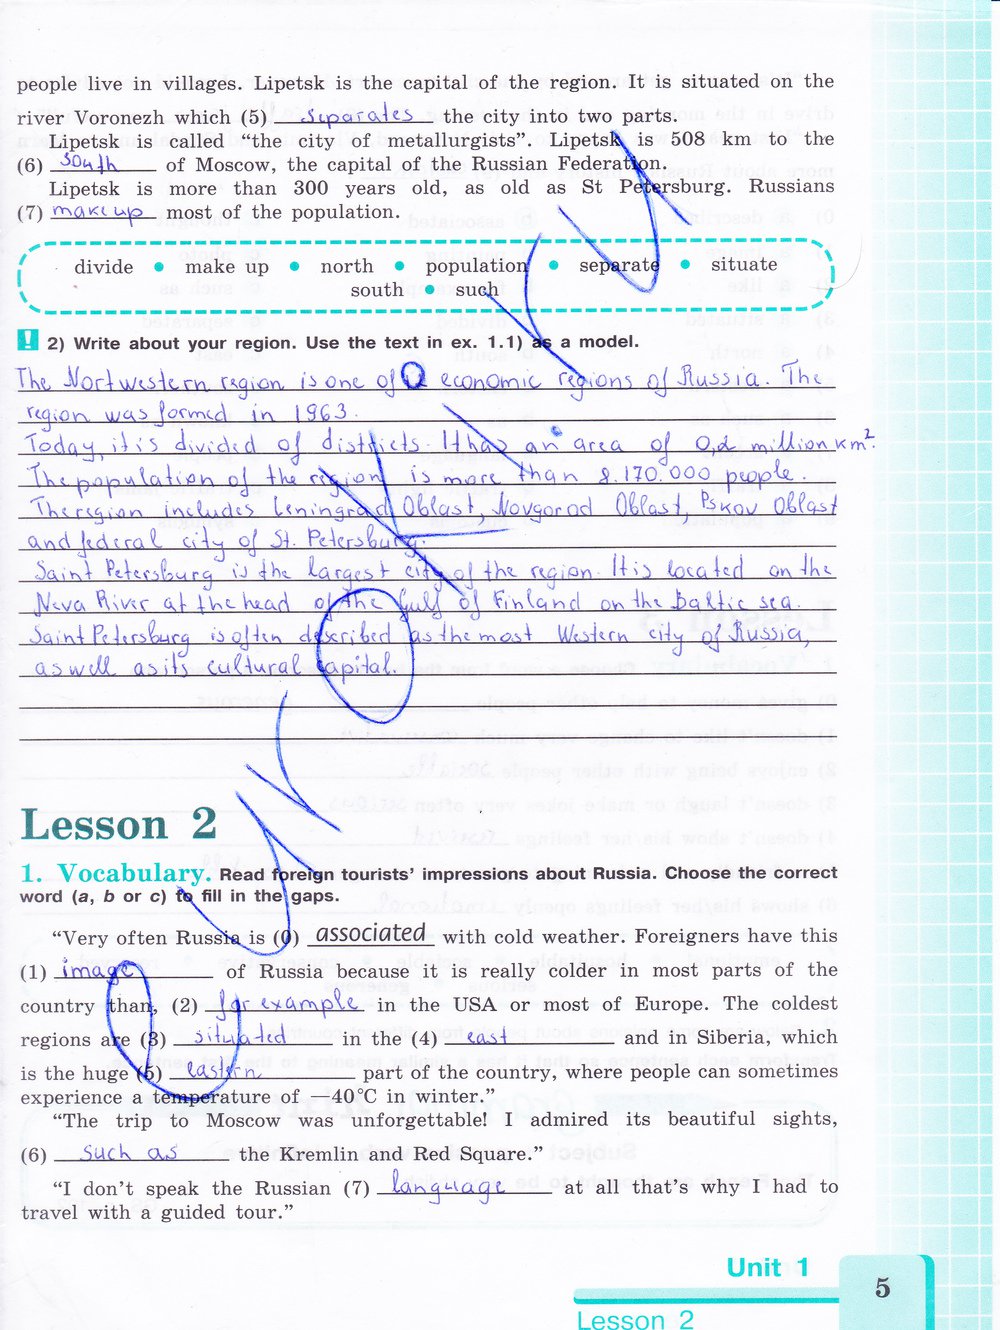 people live in villages. Lipetsk is the capital of the region. It is situated on the
river Voronezh which (5) separates the city into two parts.
Lipetsk is called “the city of metallurgists”. Lipetsk is 508 km to the
(6) south of Moscow, the capital of the Russian Federation.
Lipetsk is more than 300 years old, as old as St Petersburg. Russians
(7) make up most of the population.
divide • make up • north • population • separate • situate
south • such
! 2) Write about your region. Use the text in ex. 1.1) as a model.
The Nortwestern region is one of economic regions of Russia. The
region was formed in 1963.
Today, it is divided of districts. It has an area of 0,2 million km².
The population of the region is more than 8.170.000 people.
The region includes Leningrad Oblast, Novgorod Oblast, Pskov Oblast
and federal city of St. Petersburg.
Saint Petersburg is the largest city of the region. It is located on the
Neva River at the head of the Gulf of Finland on the Baltic sea.
Saint Petersburg is often described as the most Western city of Russia,
as well as its cultural capital.
Lesson 2
1. Vocabulary. Read foreign tourists’ impressions about Russia. Choose the correct
word (a, b or c) to fill in the gaps.
“Very often Russia is (0) associated with cold weather. Foreigners have this
(1) image of Russia because it is really colder in most parts of the
country than, (2) for example in the USA or most of Europe. The coldest
regions are (3) situated in the (4) east and in Siberia, which
is the huge (5) eastern part of the country, where people can sometimes
experience a temperature of —40°C in winter.”
“The trip to Moscow was unforgettable! I admired its beautiful sights,
(6) such as the Kremlin and Red Square.”
“I don’t speak the Russian (7) language at all that’s why I had to
travel with a guided tour.”
Unit 1
5
Lesson 2